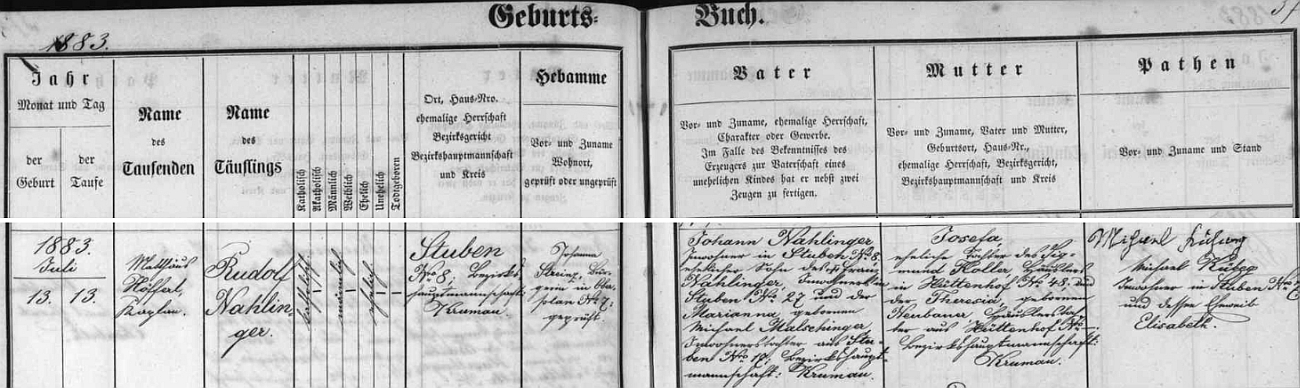 Geburts-
Buch.
1883.
Jahr
Monat und Tag
der
Geburt
der
Taufe
Name
des
Taufenden
Name
des
Täuflings
Katholisch
Akatholisch
Männlich
Weiblich
Ehelich
Unehelich
Todtgeboren
Ort, Haus-Nro.
ehemalige Herrschaft
Bezirksgericht
Bezirkshauptmannschaft
und Kreis
Hebamme
Vor- und Zuname
Wohnort,
geprüft oder ungeprüft
Vater
Vor- und Zuname, ehemalige Herrschaft,
Charakter oder Gewerbe.
Im Falle des Bekenntnisses des
Erzeugers zur Vaterschaft eines
unehelichen Kindes hat er nebst zwei
Zeugen zu fertigen.
Mutter
Vor- und Zuname, Vater und Mutter,
Geburtsort, Haus-Nr.,
ehemalige Herrschaft, Bezirksgericht,
Bezirkshauptmannschaft und Kreis
Pathen
Vor- und Zuname und Stand
1883.
Juli
13. 13.
Matthäus
Höfferl,
Kaplan.
Rudolf
Nahlin
ger.
katholisch
männlich
ehelich
Stuben
Nro 8, Bezirks
hauptmannschaft:
Krumau.
Johanna
plan No 7,
geprüft
Johann Nahlinger,
Inwohner in Stuben No 8,
ehelicher Sohn des Franz
Nahlinger, Inwohners in
Stuben No 27 und der
Marianna, geborenen
Michael Matschinger,
Inwohnerstochter aus Stu
ben No, Bezirkshaupt
mannschaft: Krumau.
Josefa,
eheliche Tochter des Sig
mund Holler, Häuslers
in Hüttenhof No 48, und
der Theresia, geborenen
Neubauer, Häuslerstoch
ter aus Hüttenhof No
Bezirkshauptmannschaft:
Krumau.
Michael
Michael
Inwohner in Stuben No
und dessen Eheweib
Elisabeth.